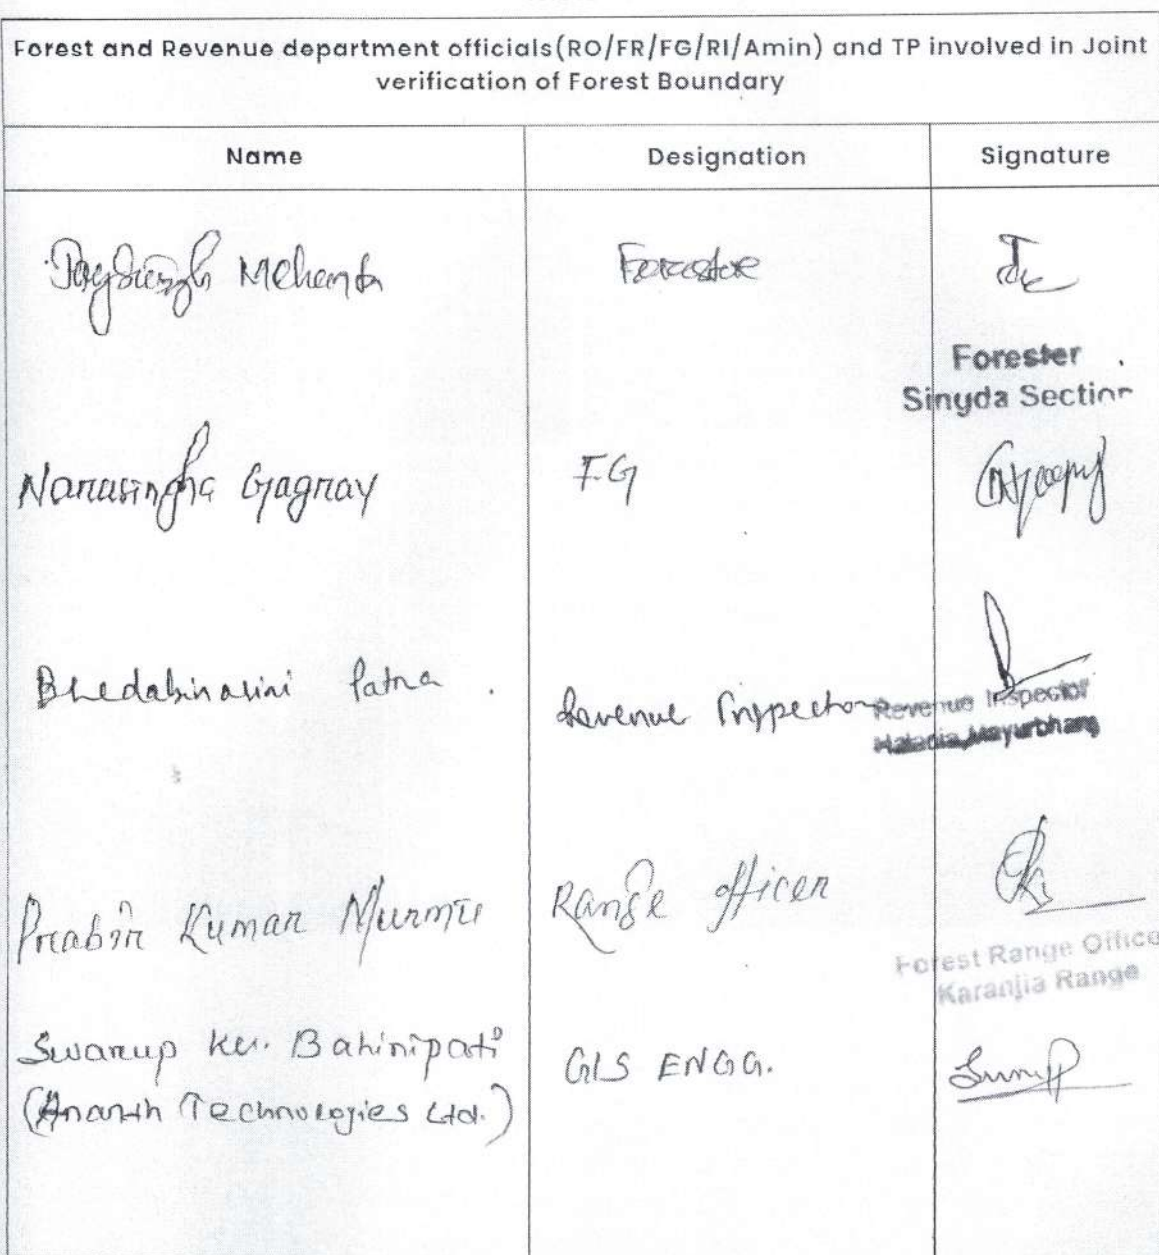 Forest and Revenue department officials(RO/FR/FG/RI/Amin) and TP involved in Joint
verification of Forest Boundary
Name Designation Signature
Mehanta Forester
Forester
Sinyda Section
Narasingha Gagray F.G
Patra Revenue Inspector
Revenue Inspector
Haladia, Mayurbhanj
Prabir Kumar Murmu Range Officer
Forest Range Office
Karanjia Range
Swarup Ku. Bahinipati GIS ENGG.
(Ananth Technologies Ltd.)